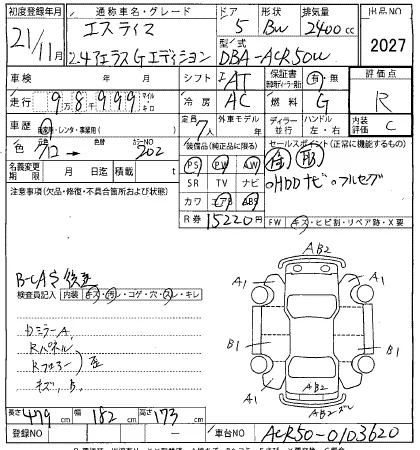 初度登録年月 通称車名・グレード ドア 形状 排気量 出品NO
21/11月 エスティマ 5 BW 2400cc 2027
2.4アエラス Gエディション 型式 DBA-ACR50W
車検 年 月 シフト AT 保証書 有・無 評価点
走行 9万8千999 マイル キロ 冷房 AC 燃料 G R
車歴 自家用・レンタ・事業用( ) 定員 7人 外車モデル 年 ディーラー 並行 ハンドル 左・右 内装評価 C
色 クロ→ 色替 カラーNO 202 装備品(純正品に限る) セールスポイント(正常に機能するもの)
名義変更期限 月 日迄 積載 t PS PW AW
注意事項(欠品・修復・不具合箇所および状態) SR TV ナビ ○HDDナビ ○フルセグ
カワ エアB ABS
R券 15220円 FW キズ・ヒビ割・リペア跡・X要
B-CAS後送
検査員記入 内装 キズ・汚レ・コゲ・穴・スレ・キレ
DミラーA,
Rパネル
Rフロアー 歪
キズ, B,
AB2
A1 A1
B1 B1
A1 AB2 A1
AB2
長さ 479 幅 182 高さ 173
登録NO 車台NO ACR50-0103620